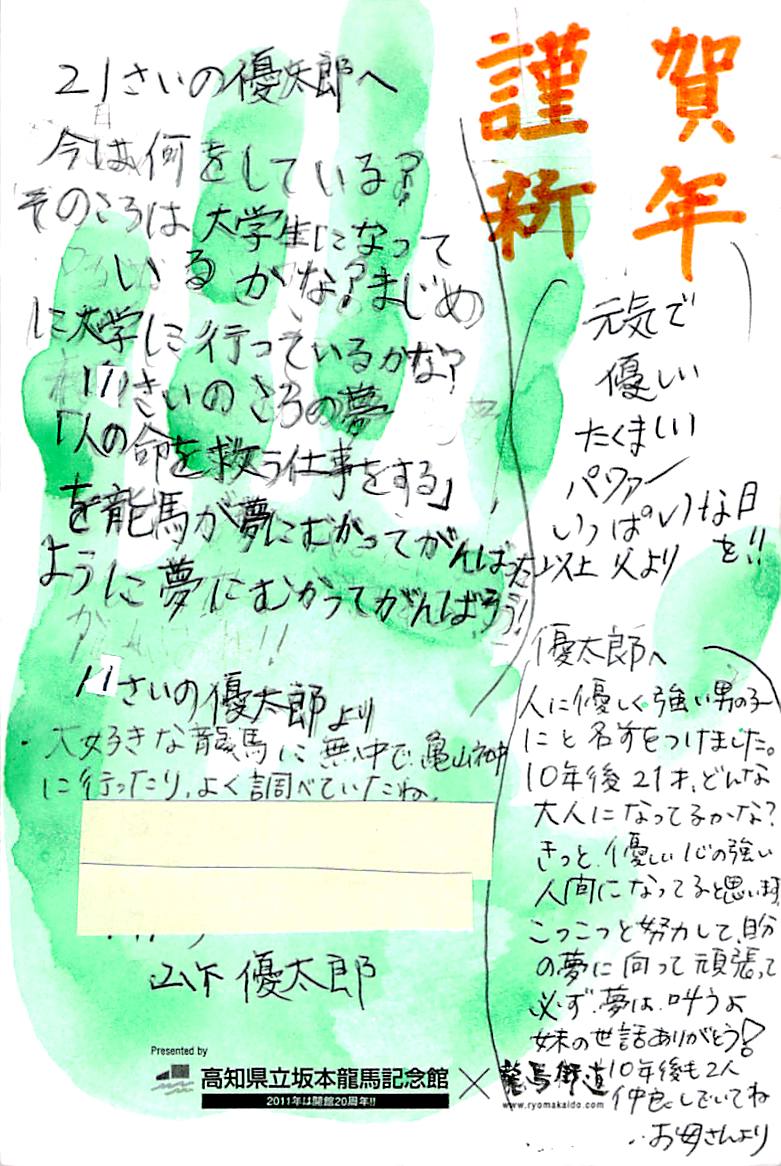 謹賀
新年
21さいの優太郎へ
今は何をしている?
そのころは大学生になって
いるかな?まじめ
に大学に行っているかな?
11さいのころの夢
「人の命を救う仕事をする」
を龍馬が夢にむかってがんばった
ように夢にむかってがんばろう!
11さいの優太郎より
大好きな龍馬に無中で、亀山社中
に行ったり、よく調べていたね。
山下優太郎
元気で
優しい
たくましい
パワァー
いっぱいな日
を!!
以上 父より
優太郎へ
人に優しく強い男の子
にと名前をつけました。
10年後21才、どんな
大人になってるかな?
きっと、優しい心の強い
人間になってると思います。
こつこつと努力して、自分
の夢に向って頑張って
必ず夢は叶うよ
妹の世話ありがとう!
10年後も2人
仲良しでいてね
お母さんより
Presented by
高知県立坂本龍馬記念館×龍馬街道
2011年は開館20周年!!
www.ryomakaido.com